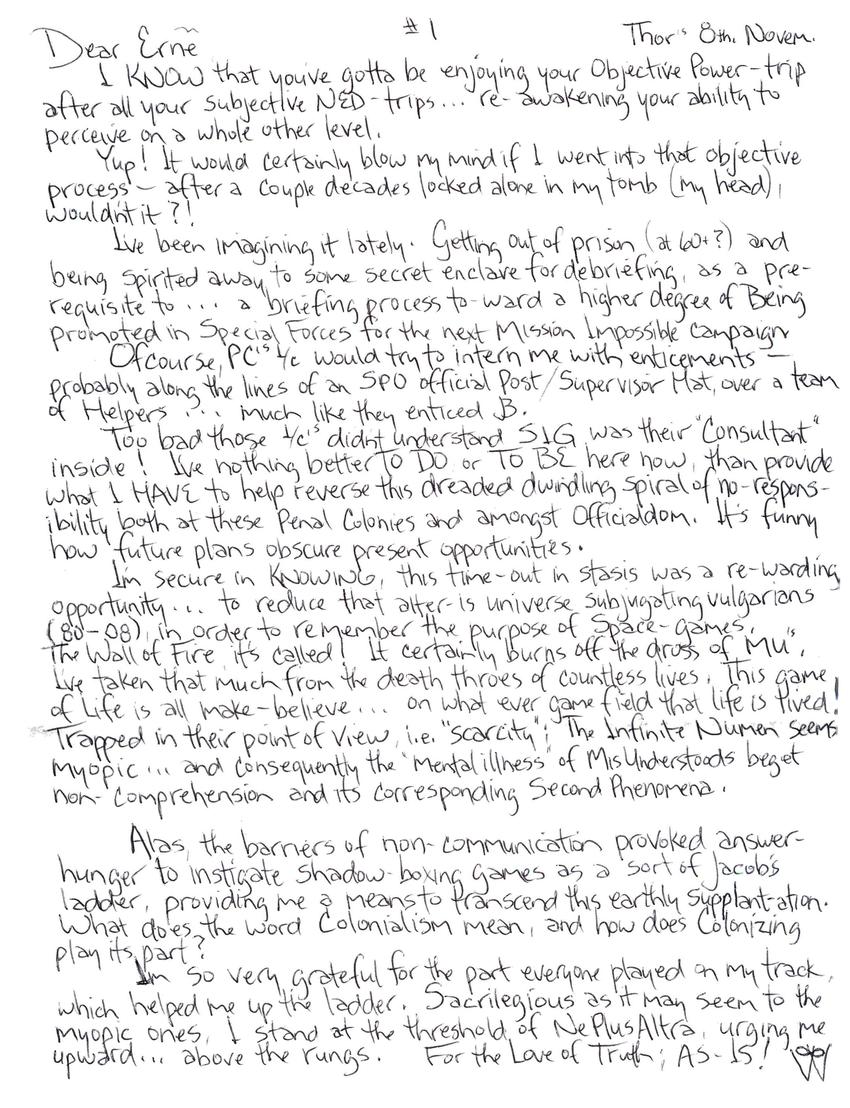 #1 Thor's 8th. Novem.
Dear Erne
I KNOW that youve gotta be enjoying your Objective Power-trip
after all your subjective NED-trips... re-awakening your ability to
perceive on a whole other level.
Yup! It would certainly blow my mind if I went into that objective
process - after a couple decades locked alone in my tomb (my head),
wouldn't it?!
I've been imagining it lately. Getting out of prison (at 60+?) and
being spirited away to some secret enclave for debriefing, as a pre-
requisite to... a briefing process to-ward a higher degree of Being
promoted in Special Forces for the next Mission Impossible campaign
Ofcourse, PC's 1/c would try to intern me with enticements -
probably along the lines of an SPO official Post/Supervisor Hat, over a team
of Helpers... much like they enticed B.
Too bad those 1/c's didnt understand SIG was their "Consultant"
inside! I've nothing better TO DO or TO BE here now, than provide
what I HAVE to help reverse this dreaded dwindling spiral of no-respons-
ibility both at these Penal Colonies and amongst Officialdom. It's funny
how future plans obscure present opportunities.
I'm secure in KNOWING, this time-out in stasis was a re-warding
opportunity... to reduce that alter-is universe subjugating vulgarians
(80-08), in order to remember the purpose of Space-games.
The Wall of Fire it's called! It certainly burns off the dross of "MU".
I've taken that much from the death throes of countless lives. This game
of Life is all make-believe... on what ever game field that life is lived!
Trapped in their point of View, i.e. "scarcity"; The Infinite Numen seems
myopic... and consequently the "mental illness" of MisUnderstoods beget
non-comprehension and its corresponding Second Phenomena.
Alas, the barriers of non-communication provoked answer-
hunger to instigate shadow-boxing games as a sort of Jacob's
ladder, providing me a means to transcend this earthly supplant-ation.
What does the word Colonialism mean, and how does Colonizing
play its part?
I'm so very grateful for the part everyone played on my track,
which helped me up the ladder. Sacrilegious as it may seem to the
myopic ones, I stand at the threshold of NePlusAltra, urging me
upward... above the rungs. For the Love of Truth; AS-IS!